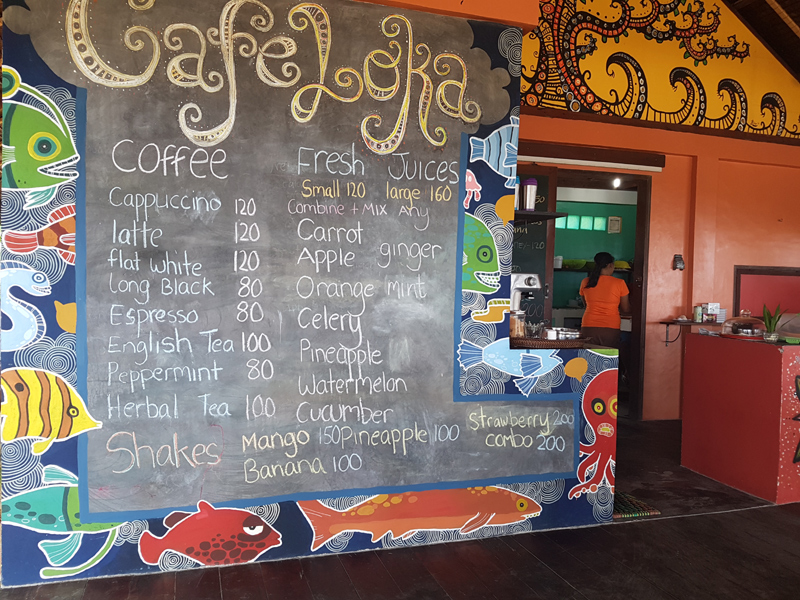 Cafe Loka
Coffee
Cappuccino 120
latte 120
flat white 120
Long Black 80
Espresso 80
English Tea 100
Peppermint 80
Herbal Tea 100
Fresh Juices
Small 120 large 160
Combine + Mix Any
Carrot
Apple ginger
Orange mint
Celery
Pineapple
Watermelon
Cucumber
Shakes Mango 150 Pineapple 100 Strawberry 200
Banana 100 combo 200